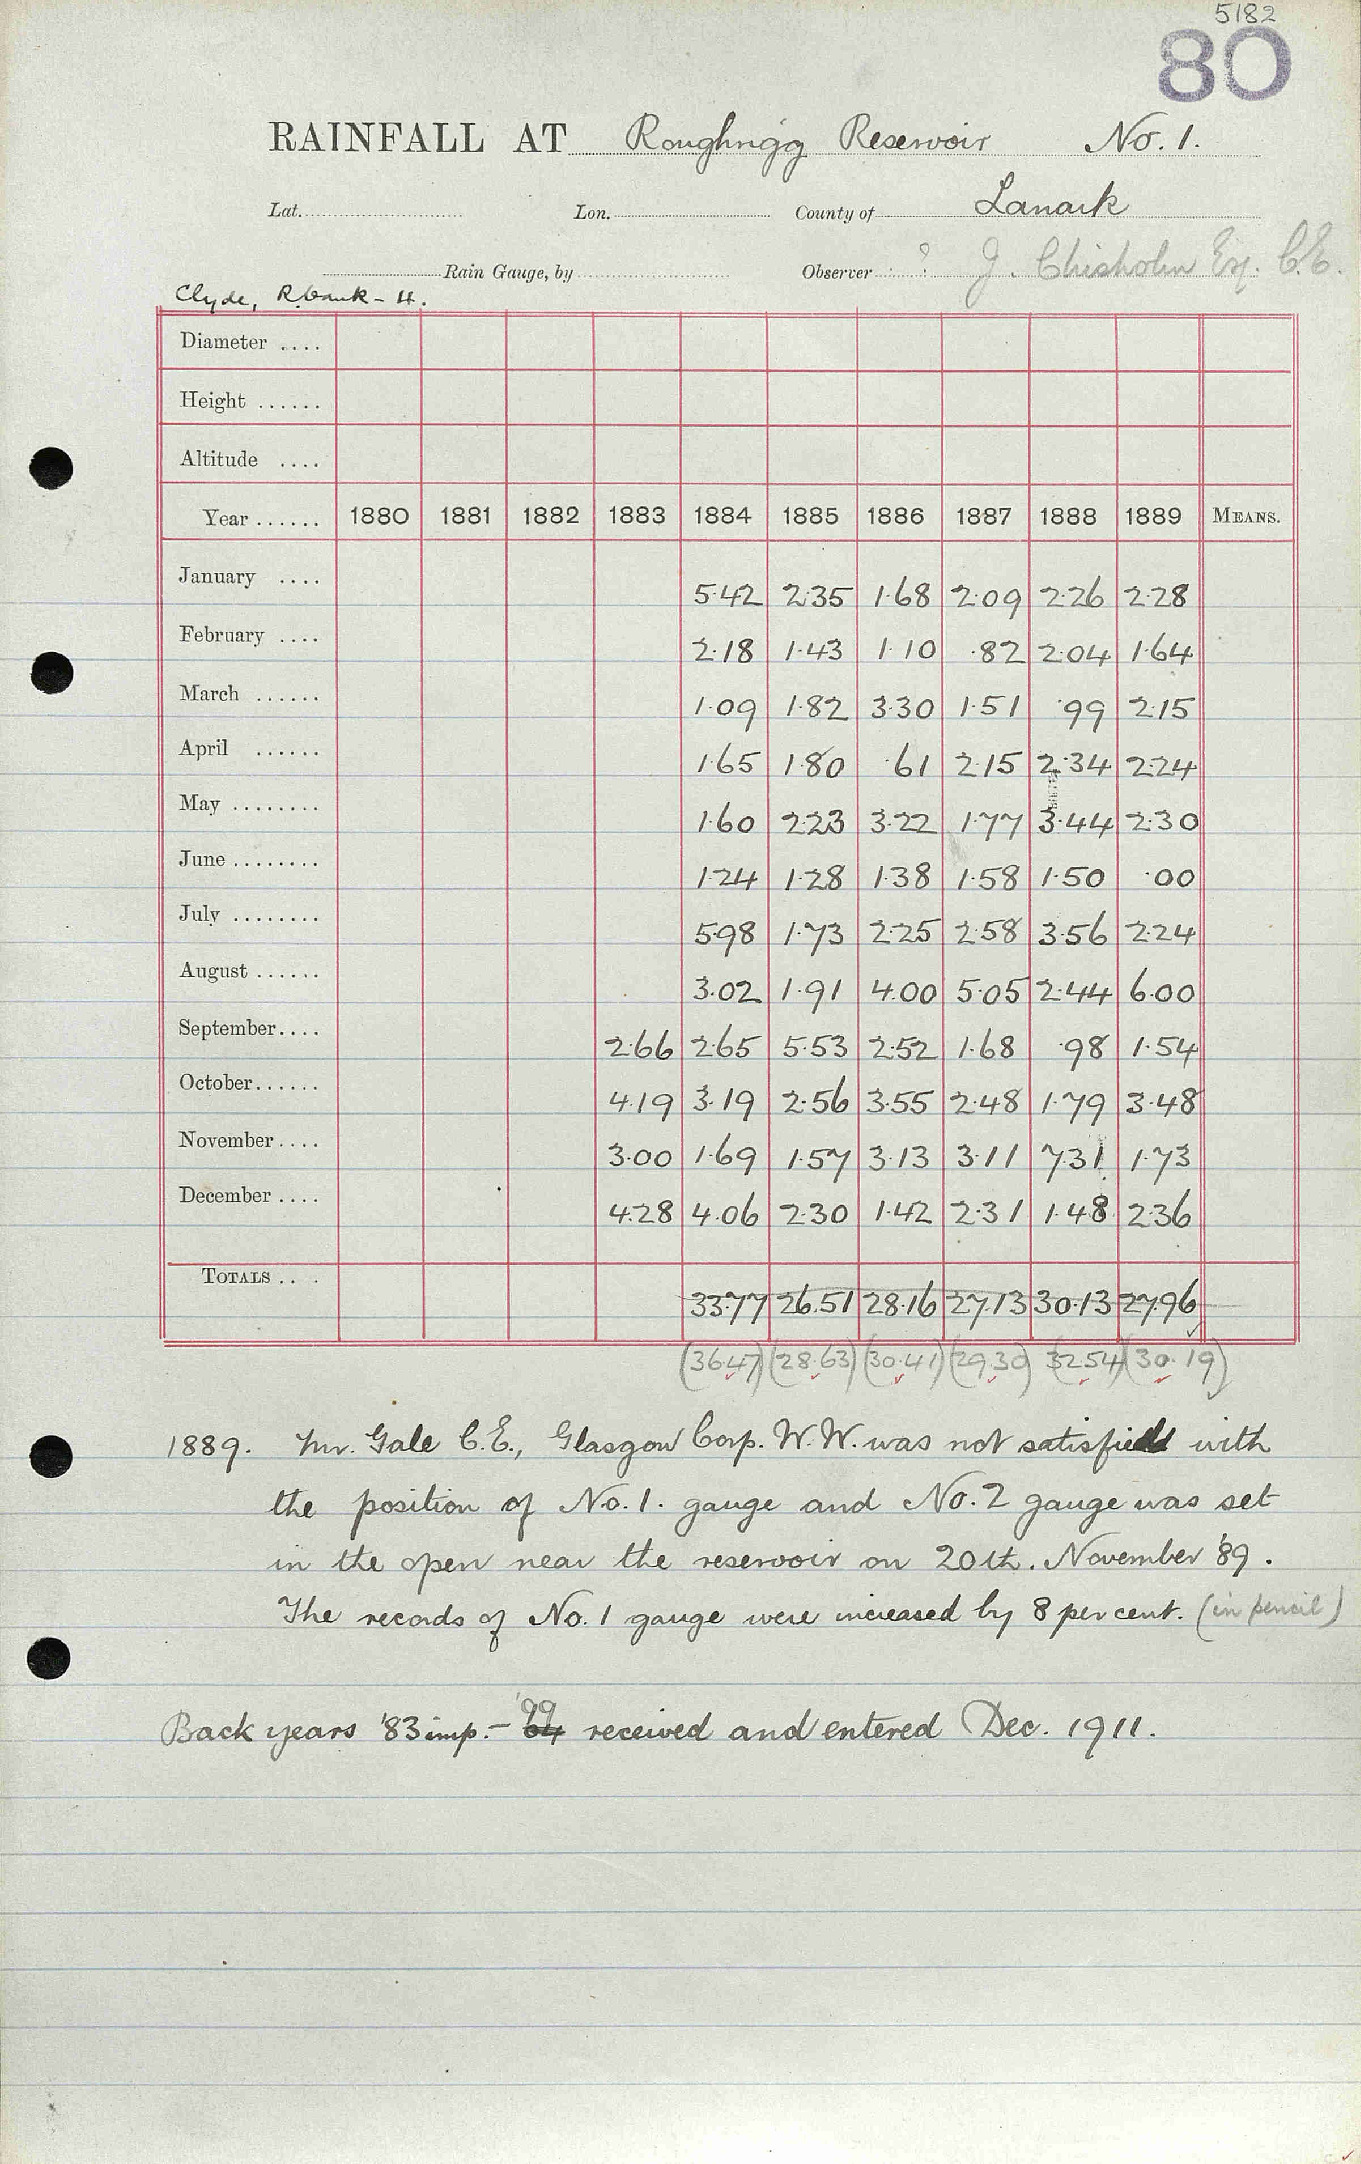 5182
80
RAINFALL AT Roughrigg Reservoir No. 1.
Lat. Lon. County of Lanark
Rain Gauge, by Observer ? J. Chisholm Esq. C.E.
Clyde, R. bank - H.
Diameter ....
Height ......
Altitude ....
Year ...... 1880 1881 1882 1883 1884 1885 1886 1887 1888 1889 MEANS.
January .... 5.42 2.35 1.68 2.09 2.26 2.28
February .... 2.18 1.43 1.10 .82 2.04 1.64
March ...... 1.09 1.82 3.30 1.51 .99 2.15
April ...... 1.65 1.80 .61 2.15 2.34 2.24
May ........ 1.60 2.23 3.22 1.77 3.44 2.30
June ........ 1.24 1.28 1.38 1.58 1.50 .00
July ........ 5.98 1.73 2.25 2.58 3.56 2.24
August ...... 3.02 1.91 4.00 5.05 2.44 6.00
September.... 2.66 2.65 5.53 2.52 1.68 .98 1.54
October...... 4.19 3.19 2.56 3.55 2.48 1.79 3.48
November.... 3.00 1.69 1.57 3.13 3.11 7.31 1.73
December .... 4.28 4.06 2.30 1.42 2.31 1.48 2.36
TOTALS .. . 33.77 26.51 28.16 27.13 30.13 27.96
(36.47) (28.63) (30.41) (29.30) 32.54) (30.19)
1889. Mr. Gale C.E., Glasgow Corp. W.W. was not satisfied with
the position of No. 1. gauge and No. 2 gauge was set
in the open near the reservoir on 20th. November '89.
The records of No. 1 gauge were increased by 8 per cent. (in pencil)
Back years '83 imp. - '99 received and entered Dec. 1911.